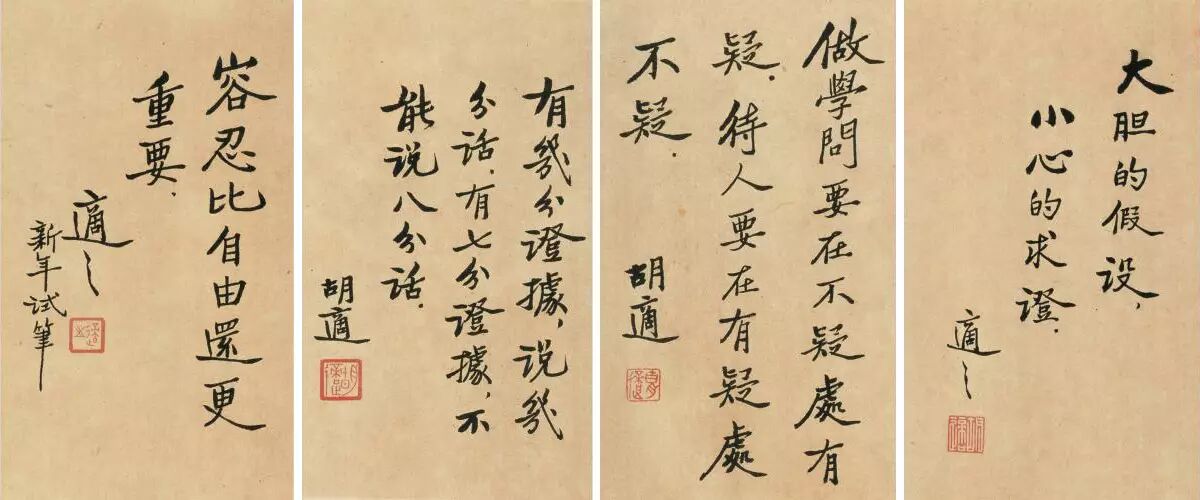 容忍比自由還更
重要．
適之
新年试筆
有幾分證據，说幾
分话．有七分證據，不
能说八分话．
胡適
做學問要在不疑處有
疑．待人要在有疑處
不疑．
胡適
大胆的假设，
小心的求證．
適之